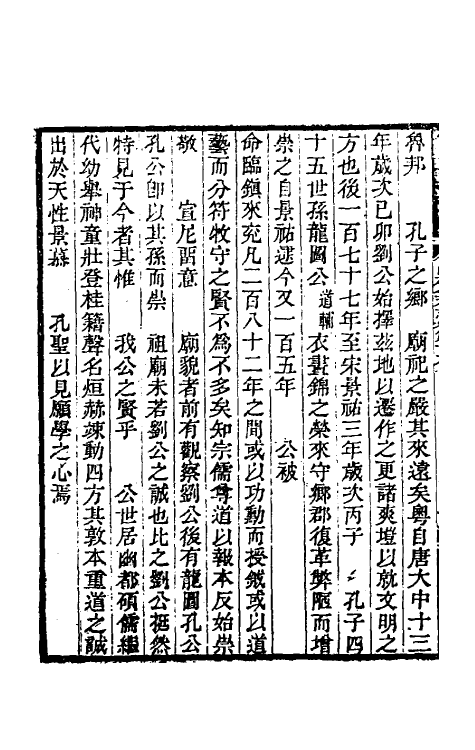 魯邦　孔子之鄉　廟祀之嚴其來遠矣粵自唐大中十三
年歲次己卯劉公始擇茲地以遷作之更諸爽塏以就文明之
方也後一百七十七年至宋景祐三年歲次丙子　孔子四
十五世孫龍圖公道輔衣晝錦之榮來守鄉郡復革弊陋而增
崇之自景祐迄今又一百五年　公被
命臨鎮來兖凡二百八十二年之間或以功動而授鉞或以道
藝而分符牧守之賢不爲不多矣知宗儒尊道以報本反始崇
敬　宣尼留意　廟貌者前有觀察劉公後有龍圖孔公
孔公卽以其孫而崇　祖廟未若劉公之誠也比之劉公挺然
特見于今者其惟　我公之賢乎　公世居幽都碩儒繼
代幼舉神童壯登桂籍聲名烜赫竦動四方其敦本重道之誠
出於天性景慕　孔聖以見願學之心焉